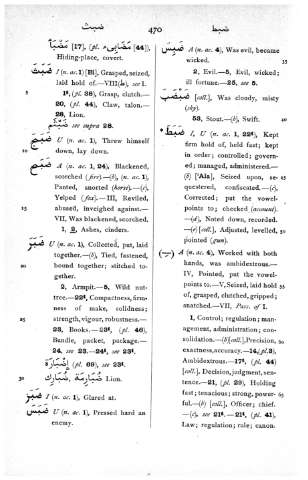 ضبث
470
ضبط
مَضْبَأ [17], (pl. مَضَابِىء [44]),
Hiding-place, covert.
ضَبَثَ I (n. ac. 1) [Bi], Grasped, seized,
laid hold of.—VIII(in), see I.
1t, (pl. 38), Grasp, clutch.—
20, (pl. 44), Claw, talon.—
28, Lion.
see supra 28.
ضَبَحَ U (n. ac. 1), Threw himself
down, lay down.
ضَبَحَ A (n. ac. 1, 24), Blackened,
scorched (fire)—(b), (n. ac. 1),
Panted, snorted (horse).—(c),
Yelped (fox).—III, Reviled,
abused, inveighed against.—
VII, Was blackened, scorched.
1, 2, Ashes, cinders.
ضَبَرَ U (n. ac. 1), Collected, put, laid
together.—(b), Tied, fastened,
bound together; stitched to-
gether.
2, Armpit.—5, Wild nut-
tree.—22t, Compactness, firm-
ness of make, solidness;
strength, vigour, robustness.—
23, Books.—23t, (pl. 46),
Bundle, packet, package.—
24, see 23.—24t, see 23t.
إِضْبَارَة (pl. 69), see 23t.
ضُبَارِمَة, ضُبَارِك Lion.
ضَبَزَ I (n. ac. 1), Glared at.
ضَبَسَ U (n. ac. 1), Pressed hard an
enemy.
ضَبِسَ A (n. ac. 4), Was evil, became
wicked.
2, Evil.—5, Evil, wicked;
ill fortune.—25, see 5.
[coll.], Was cloudy, misty
(sky).
53, Stout.—(b), Swift.
ضَبَطَ I, U (n. ac. 1, 22t), Kept
firm hold of, held fast; kept
in order; controlled; govern-
ed; managed, administered.—
(b) ['Ala], Seized upon, se-
questered, confiscated.—(c),
Corrected; put the vowel-
points to; checked (account).
—(d), Noted down, recorded.
—(e) [coll.], Adjusted, levelled,
pointed (gun).
A (n. ac. 4), Worked with both
hands, was ambidextrous.—
IV, Pointed, put the vowel-
points to.—V, Seized, laid hold
of, grasped, clutched, gripped;
snatched.—VII, Pass. of I.
1, Control; regulation; man-
agement, administration; con-
solidation.—(b)[coll.],Precision,
exactness, accuracy.—14, (pl.3),
Ambidextrous.—17t, (pl. 44)
[coll.], Decision, judgment, sen-
tence.—21, (pl. 29), Holding
fast; tenacious; strong, power-
ful.—(b) [coll.], Officer; chief.
—(c), see 21t.—21t, (pl. 41),
Law; regulation; rule; canon.